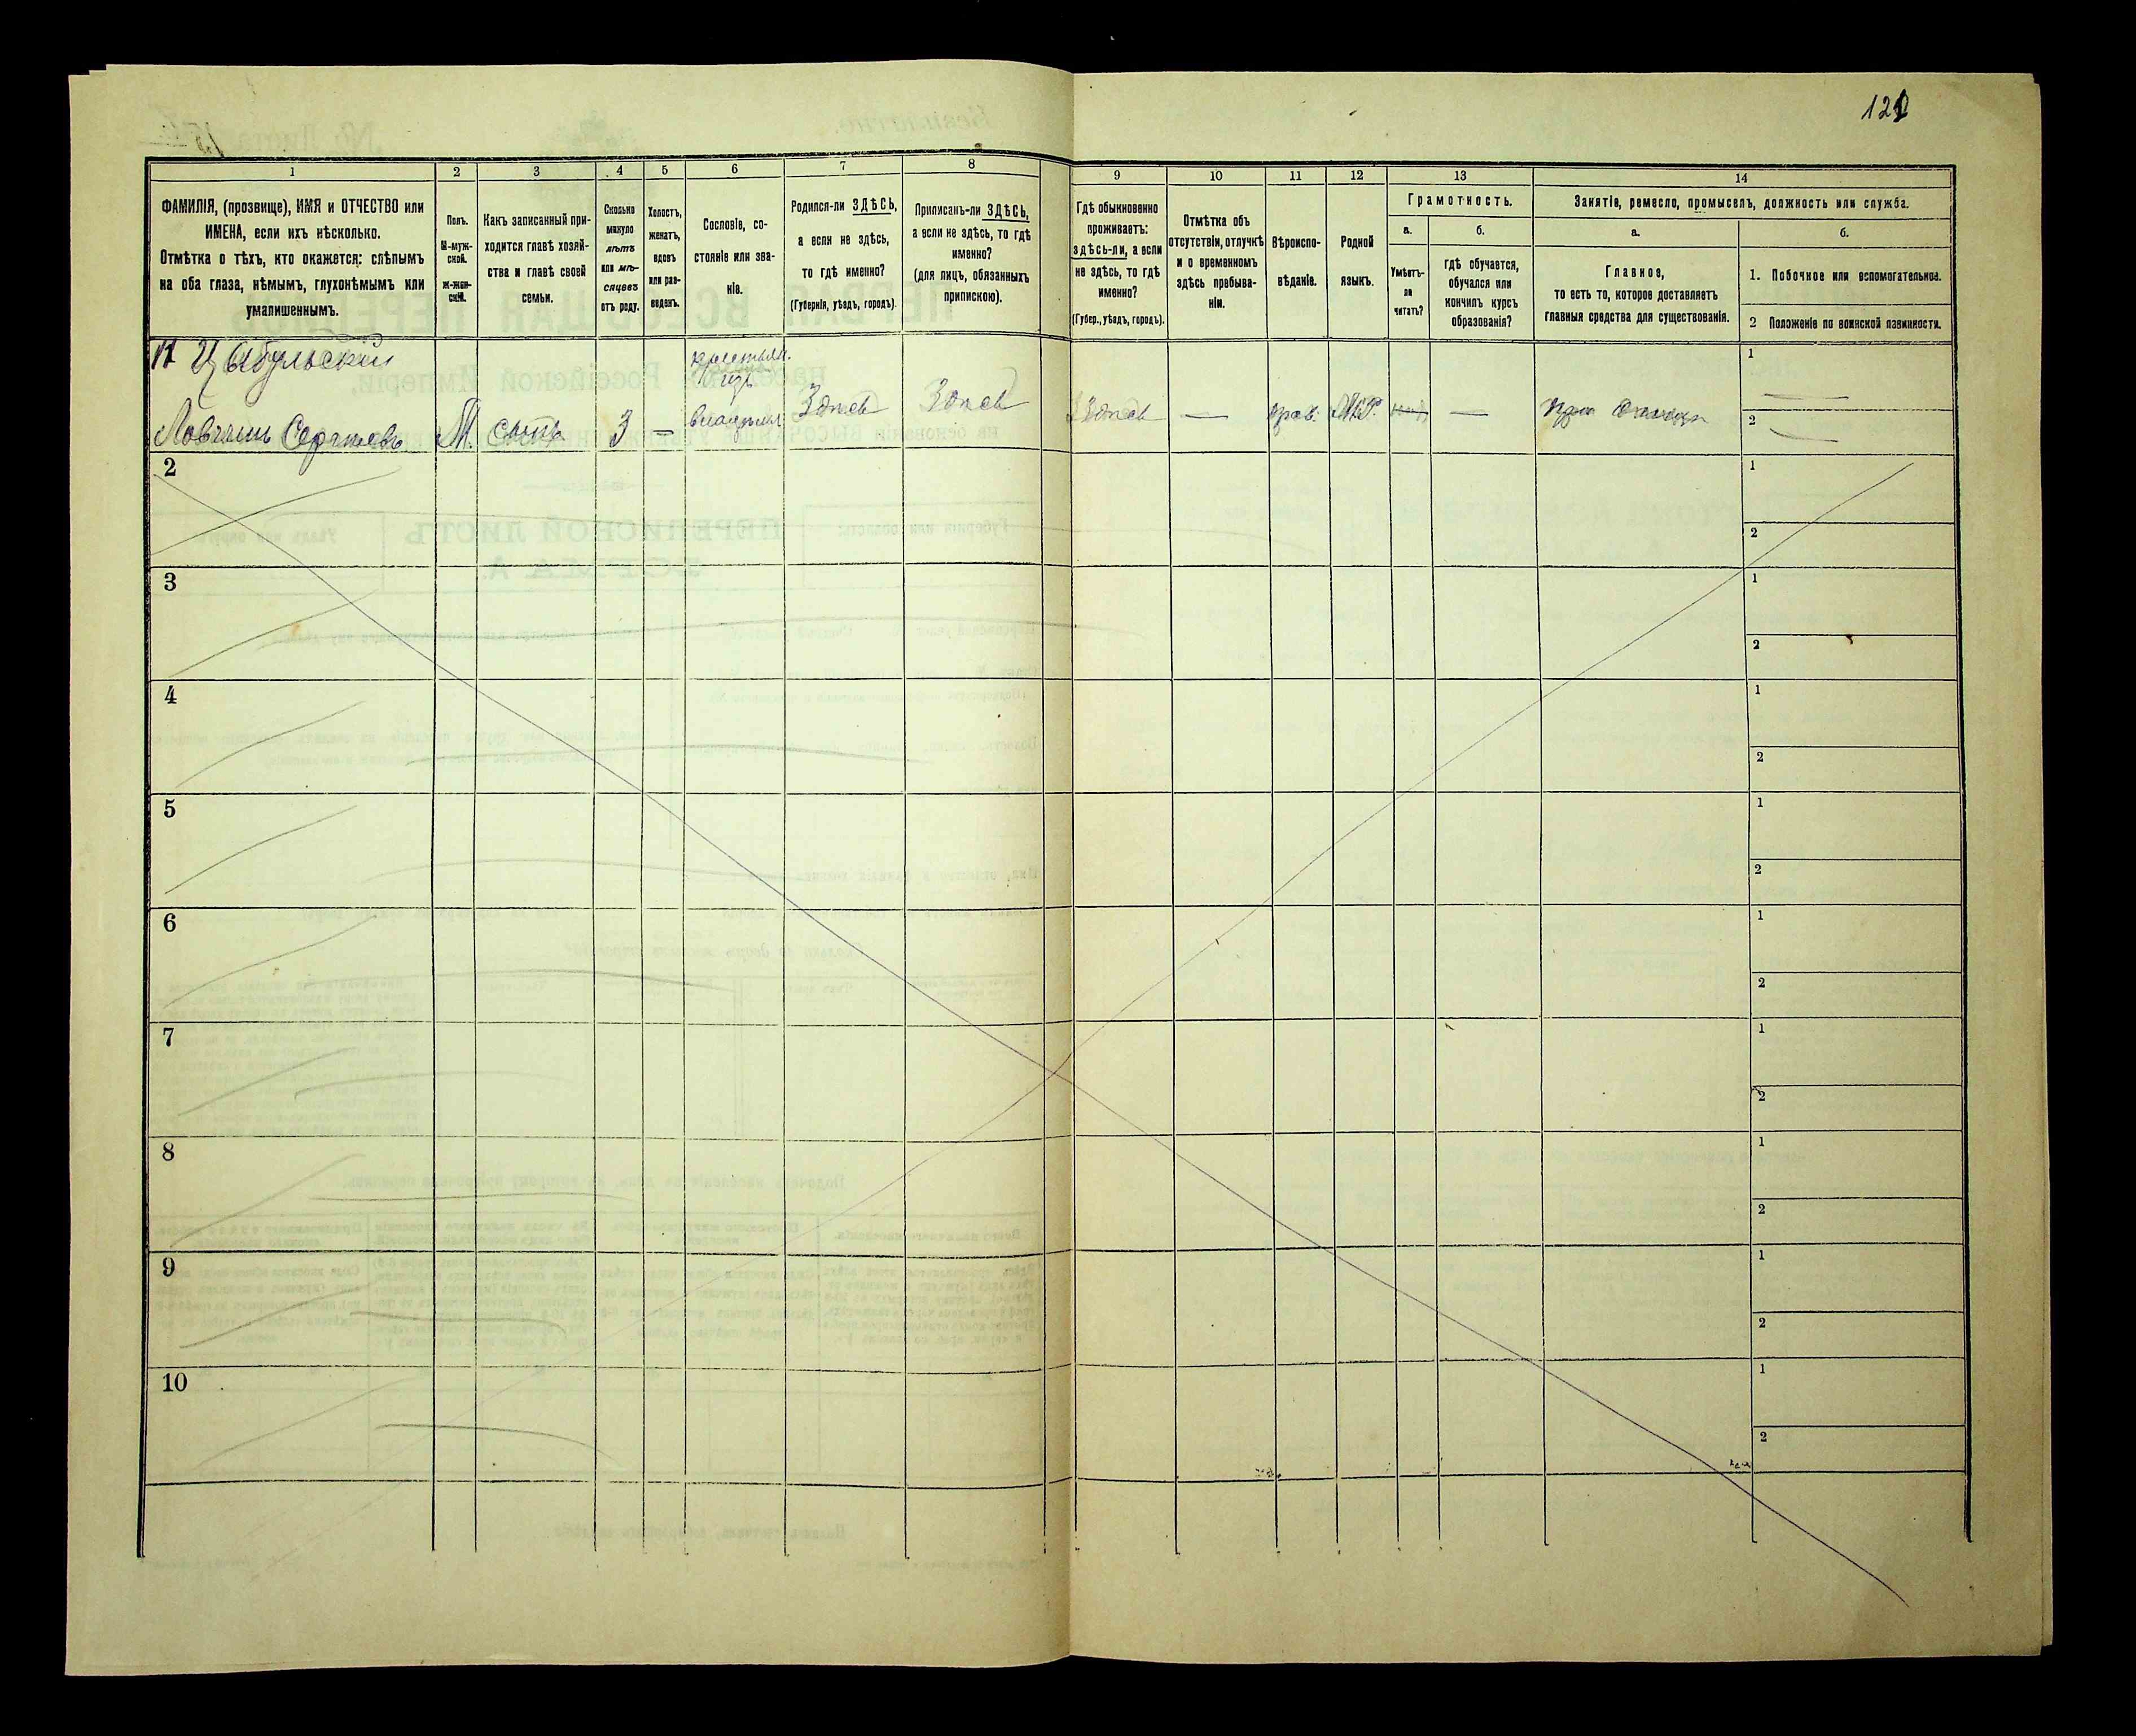 121
1
2
3
4
5
6
7
8
9
10
11
12
13
14
ФАМИЛІЯ, (прозвище), ИМЯ и ОТЧЕСТВО или
ИМЕНА, если ихъ нѣсколько.
Отмѣтка о тѣхъ, кто окажется: слѣпымъ
на оба глаза, нѣмымъ, глухонѣмымъ или
умалишеннымъ.
Полъ.
М-муж-
ской.
ж-жен-
скій.
Какъ записанный при-
ходится главѣ хозяй-
ства и главѣ своей
семьи.
Сколько
минуло
лѣтъ
или мѣ-
сяцевъ
отъ роду.
Холостъ,
женатъ,
вдовъ
или раз-
веденъ.
Сословіе, со-
стояніе или зва-
ніе.
Родился-ли ЗДѢСЬ,
а если не здѣсь,
то гдѣ именно?
(Губернія, уѣздъ, городъ).
Приписанъ-ли ЗДѢСЬ,
а если не здѣсь, то гдѣ
именно?
(для лицъ, обязанныхъ
припискою).
Гдѣ обыкновенно
проживаетъ:
здѣсь-ли, а если
не здѣсь, то гдѣ
именно?
(Губер., уѣздъ, городъ).
Отмѣтка объ
отсутствіи, отлучкѣ
и о временномъ
здѣсь пребыва-
ніи.
Вѣроиспо-
вѣданіе.
Родной
языкъ.
Грамотность.
а.
Умѣетъ-
ли
читать?
б.
гдѣ обучается,
обучался или
кончилъ курсъ
образованія?
Занятіе, ремесло, промыселъ, должность или служба.
а.
Главное,
то есть то, которое доставляетъ
главныя средства для существованія.
б.
1. Побочное или вспомогательное.
2 Положеніе по воинской повинности.
Цыбульскій
Сергѣевъ М. сынъ 3 — Здѣсь Здѣсь Здѣсь — прав. — При отцѣ
1
2
2
1
2
3
1
2
4
1
2
5
1
2
6
1
2
7
1
2
8
1
2
9
1
2
10
1
2